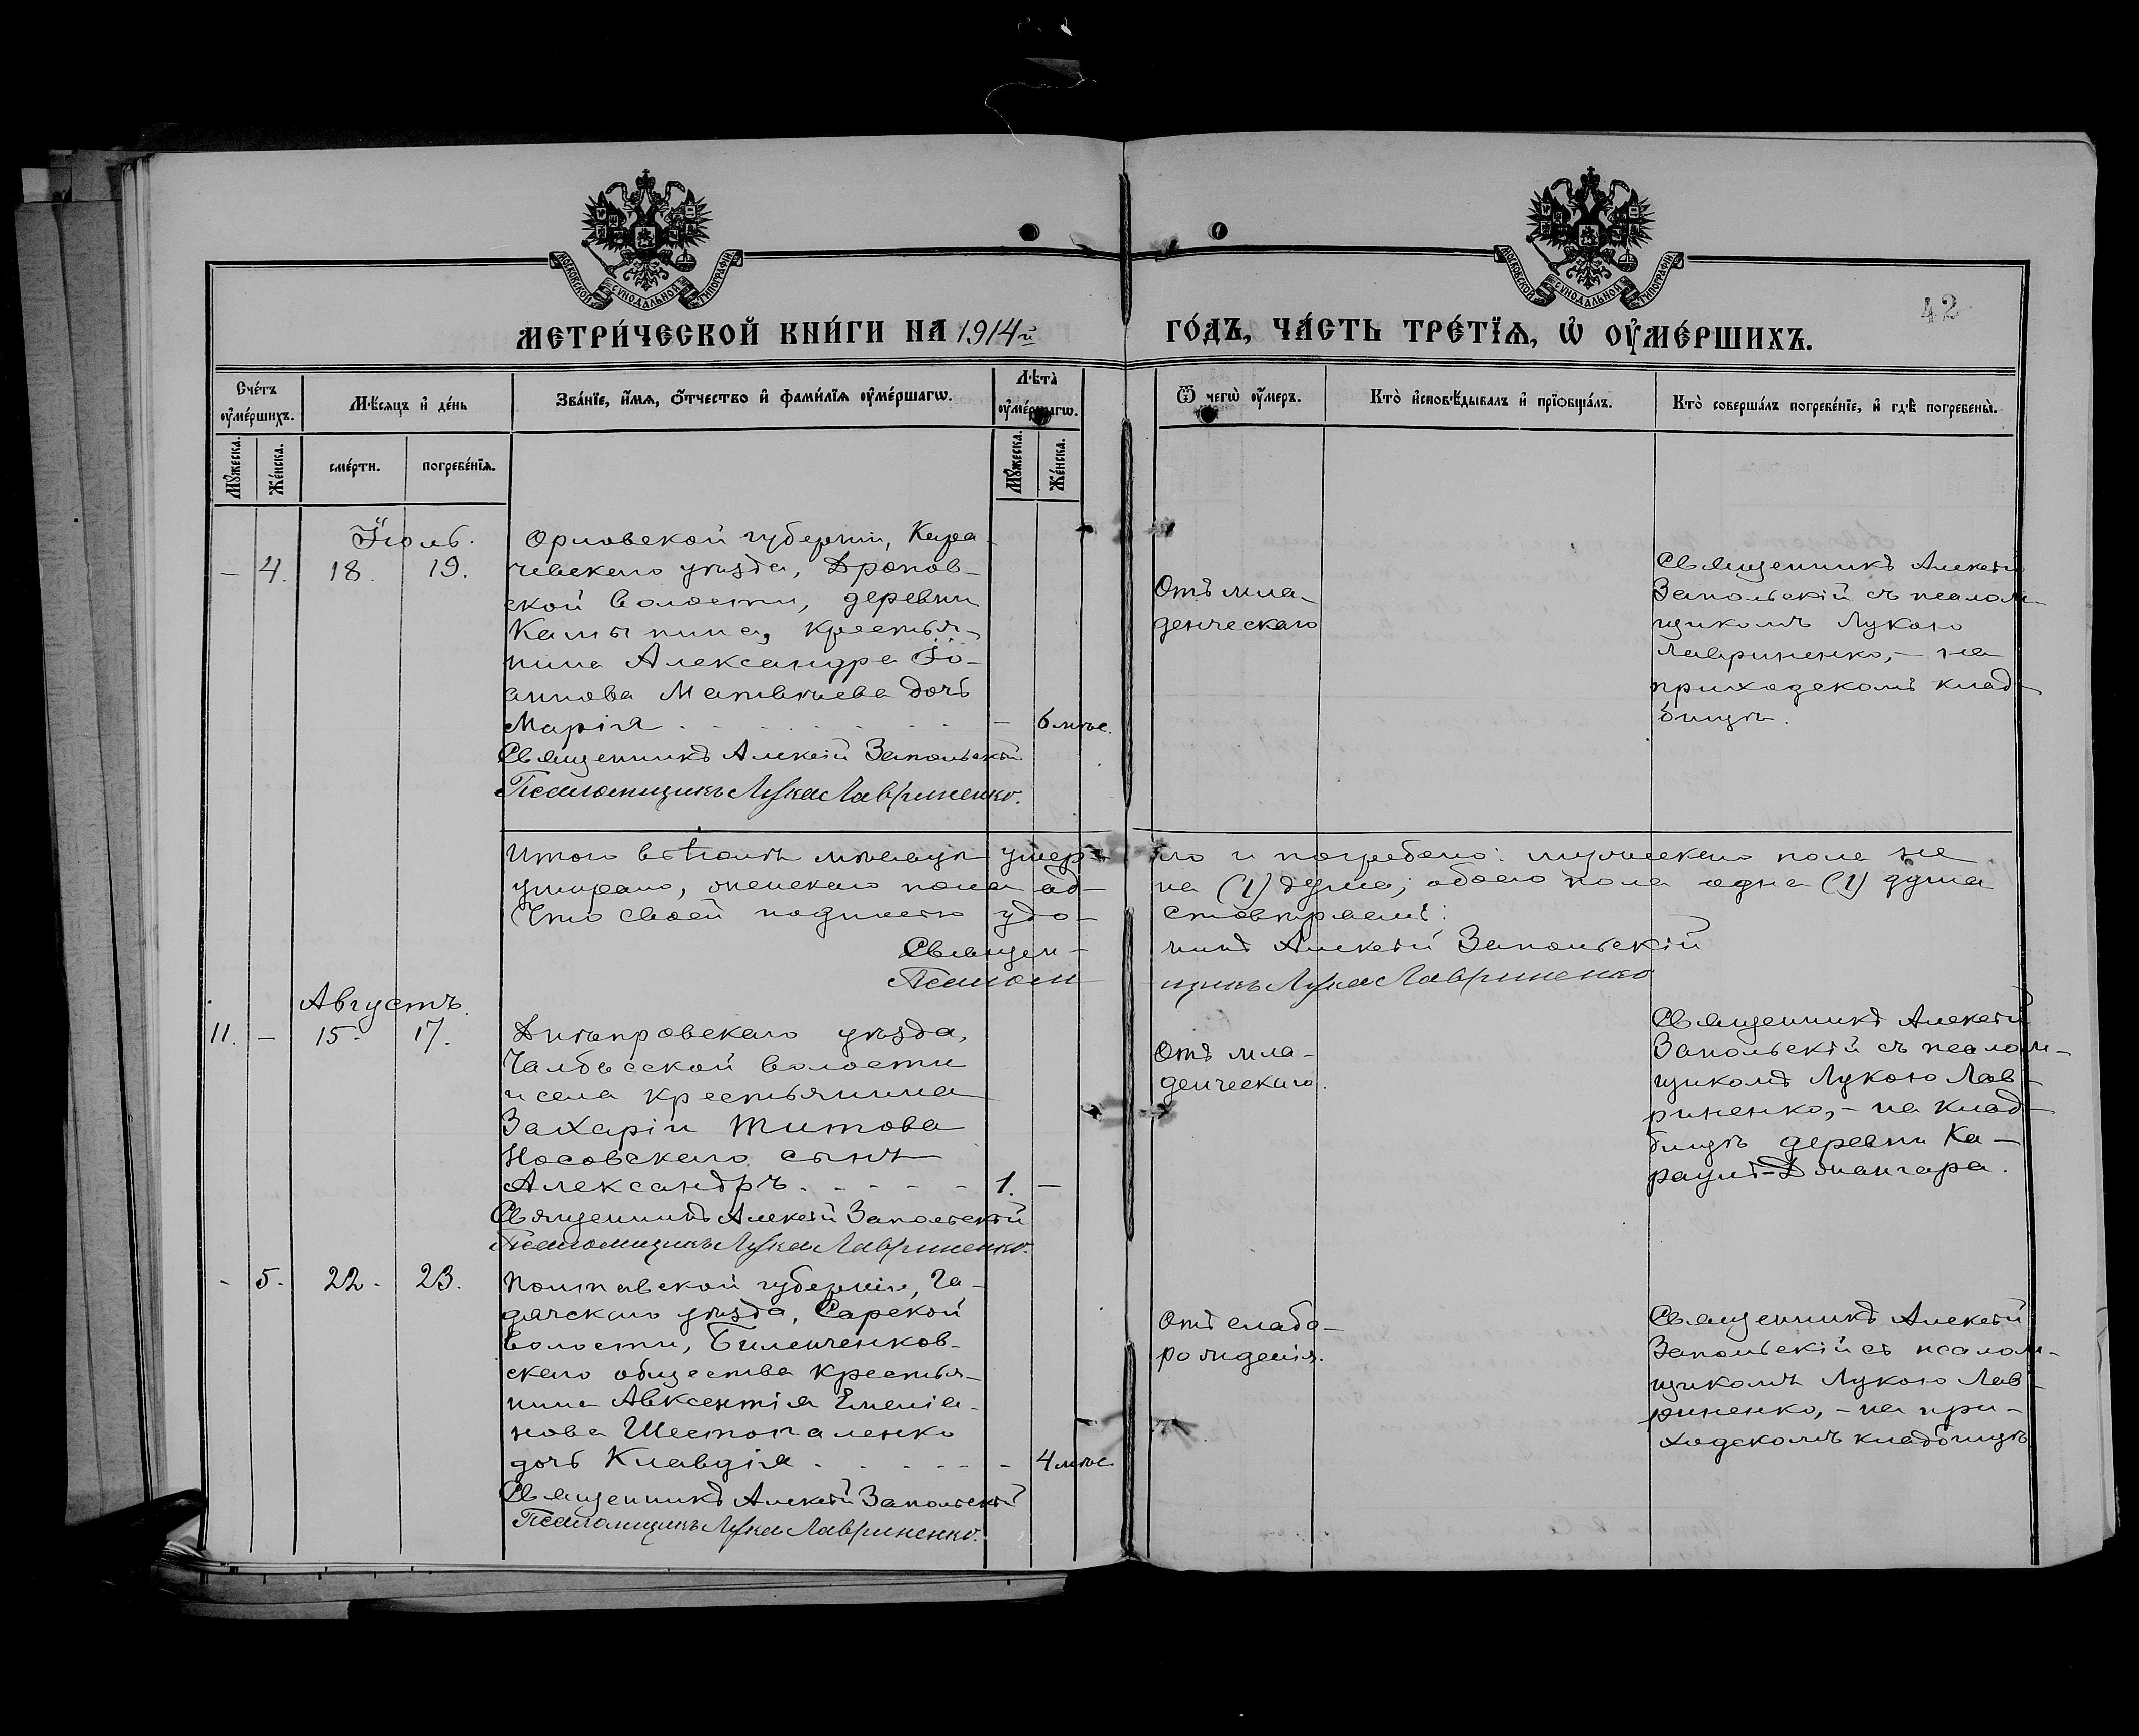 МОСКОВСКОЙ СѴНОДАЛЬНОЙ ТИПОГРАФІИ
МОСКОВСКОЙ СѴНОДАЛЬНОЙ ТИПОГРАФІИ
42
МЕТРИ́ЧЕСКОЙ КНИ́ГИ НА 1914й
ГО́ДЪ, ЧА́СТЬ ТРЕ́ТЇѦ, Ѡ҆ ОУ҆МЕ́РШИХЪ.
Сче́тъ оу҆ме́ршихъ.
Мѣ́сяцъ и҆ де́нь
Зва́нїе, и҆́мя, ѻ҆́тчество и҆ фами́лїя оу҆ме́ршагѡ.
Лѣ́та̀ оу҆ме́ршагѡ.
Ѿ чегѡ̀ оу҆́меръ.
Кто̀ и҆сповѣ́дывалъ и҆ прїѻбща́лъ.
Кто̀ соверша́лъ погребе́нїе, и҆ гдѣ̀ погребены̀.
Мꙋ́жеска.
Же́нска.
сме́рти.
погребе́нїя.
Мꙋ́жеска.
Же́нска.
Іюль.
– 4. 18. 19.
Орловской губерніи, Кара-
чевскаго уѣзда, Дронов-
ской волости, деревни
Камынина, крестья-
нина Александра Іо-
аннова Матвѣева дочь
Марія . . . . . . – 6 мѣс.
Священникъ Алексій Запольскій
Псаломщикъ Лука Лавриненко.
Отъ мла-
денческаго
Священникъ Алексій
Запольскій съ псалом-
щикомъ Лукою
Лавриненко, – на
приходскомъ клад-
бищѣ.
Итого въ іюлѣ мѣсяцѣ умер-ло и погребено: мужескаго пола не
умирало, женскаго пола од-на (1) душа; обоего пола одна (1) душа
Что своей подписью удо-стовѣряемъ:
Священ-никъ Алексій Запольскій
Псалом-щикъ Лука Лавриненко
Августъ.
11. – 15. 17.
Днѣпровскаго уѣзда,
Чалбасской волости
и села крестьянина
Захаріи Титова
Носовскаго сынъ
Александръ. - - - - - 1. –
Священникъ Алексій Запольскій
Псаломщикъ Лука Лавриненко.
Отъ мла-
денческаго.
Священникъ Алексій
Запольскій съ псалом-
щикомъ Лукою Лав-
риненко, – на клад-
бищѣ деревни Ка-
раулъ-Джангара.
- 5. 22. 23.
Полтавской губерніи, Га-
дячскаго уѣзда, Сарской
волости, Биленченков-
скаго общества крестья-
нина Авксентія Емелiа-
нова Шестопаленко
дочь Клавдія . . . . . . – 4 мѣс.
Священникъ Алексій Запольскій
Псаломщикъ Лука Лавриненко.
Отъ слабо-
рожденія.
Священникъ Алексій
Запольскій съ псалом-
щикомъ Лукою Лав-
риненко, – на при-
ходскомъ кладбищѣ